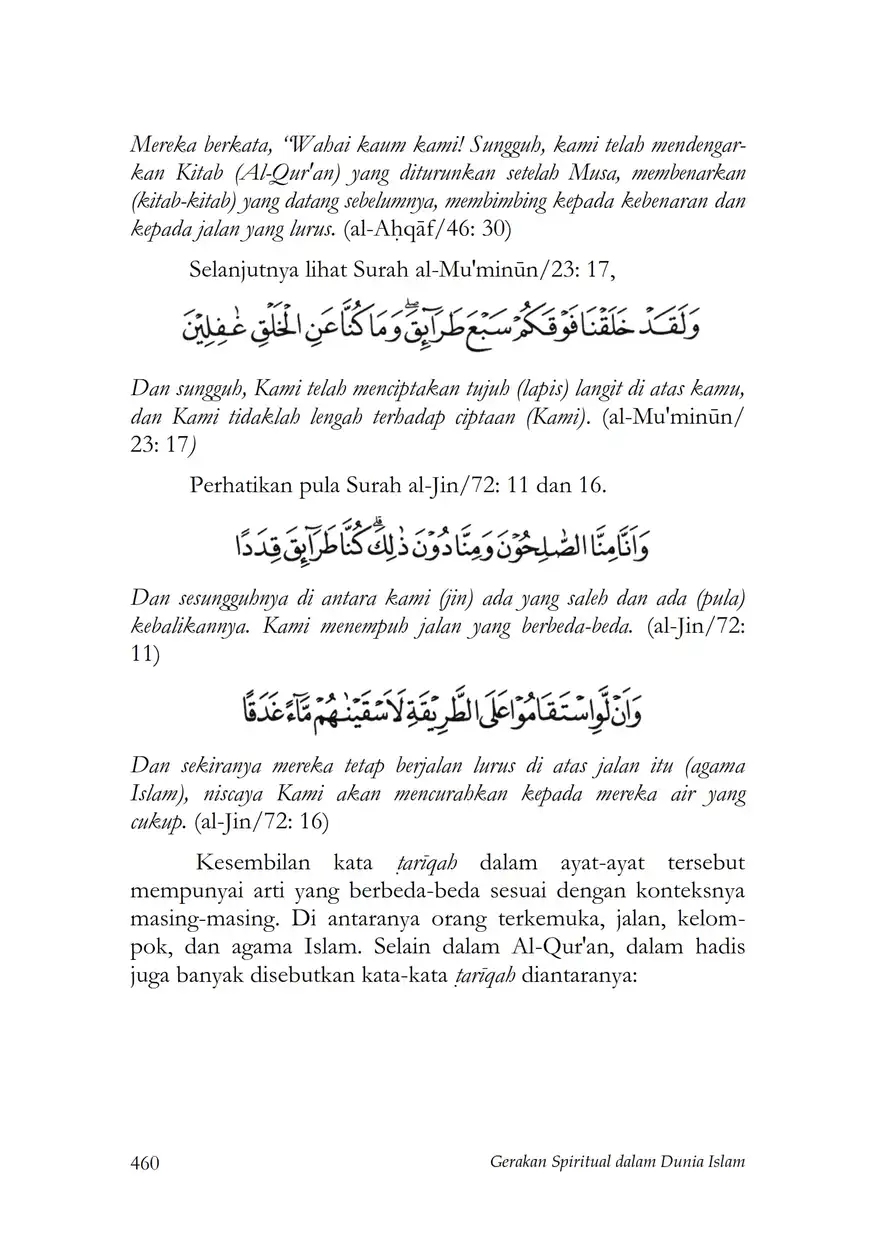 Mereka berkata, “Wahai kaum kami! Sungguh, kami telah mendengar-
kan Kitab (Al-Qur'an) yang diturunkan setelah Musa, membenarkan
(kitab-kitab) yang datang sebelumnya, membimbing kepada kebenaran dan
kepada jalan yang lurus. (al-Aḥqāf/46: 30)
Selanjutnya lihat Surah al-Mu'minūn/23: 17,
وَلَقَدْ خَلَقْنَا فَوْقَكُمْ سَبْعَ طَرَاۤىِٕقَۖ وَمَا كُنَّا عَنِ الْخَلْقِ غٰفِلِيْنَ
Dan sungguh, Kami telah menciptakan tujuh (lapis) langit di atas kamu,
dan Kami tidaklah lengah terhadap ciptaan (Kami). (al-Mu'minūn/
23: 17)
Perhatikan pula Surah al-Jin/72: 11 dan 16.
وَاَنَّا مِنَّا الصّٰلِحُوْنَ وَمِنَّا دُوْنَ ذٰلِكَۗ كُنَّا طَرَاۤىِٕقَ قِدَدًا
Dan sesungguhnya di antara kami (jin) ada yang saleh dan ada (pula)
kebalikannya. Kami menempuh jalan yang berbeda-beda. (al-Jin/72:
11)
وَاَنْ لَّوِ اسْتَقَامُوْا عَلَى الطَّرِيْقَةِ لَاَسْقَيْنٰهُمْ مَّاۤءً غَدَقًا
Dan sekiranya mereka tetap berjalan lurus di atas jalan itu (agama
Islam), niscaya Kami akan mencurahkan kepada mereka air yang
cukup. (al-Jin/72: 16)
Kesembilan kata ṭarīqah dalam ayat-ayat tersebut
mempunyai arti yang berbeda-beda sesuai dengan konteksnya
masing-masing. Di antaranya orang terkemuka, jalan, kelom-
pok, dan agama Islam. Selain dalam Al-Qur'an, dalam hadis
juga banyak disebutkan kata-kata ṭarīqah diantaranya:
460
Gerakan Spiritual dalam Dunia Islam